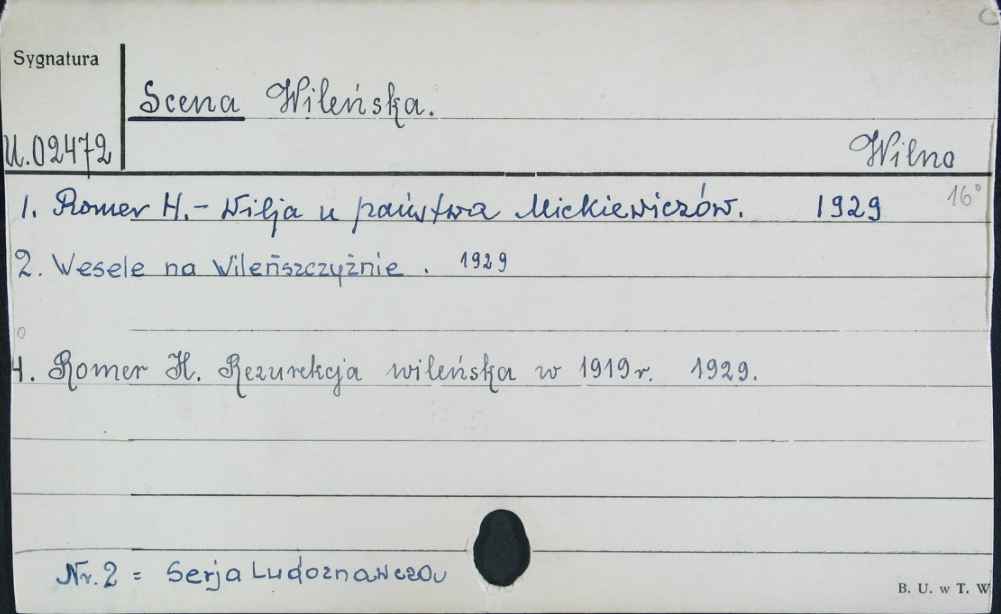 Sygnatura
Scena Wileńska.
U.02472
Wilno
16°
1. Romer H. - Wilja u państwa Mickiewiczów. 1929
2. Wesele na Wileńszczyźnie. 1929
4. Romer H. Rezurekcja wileńska w 1919 r. 1929.
Nr. 2 = Serja Ludoznawcza
B. U. w T. W